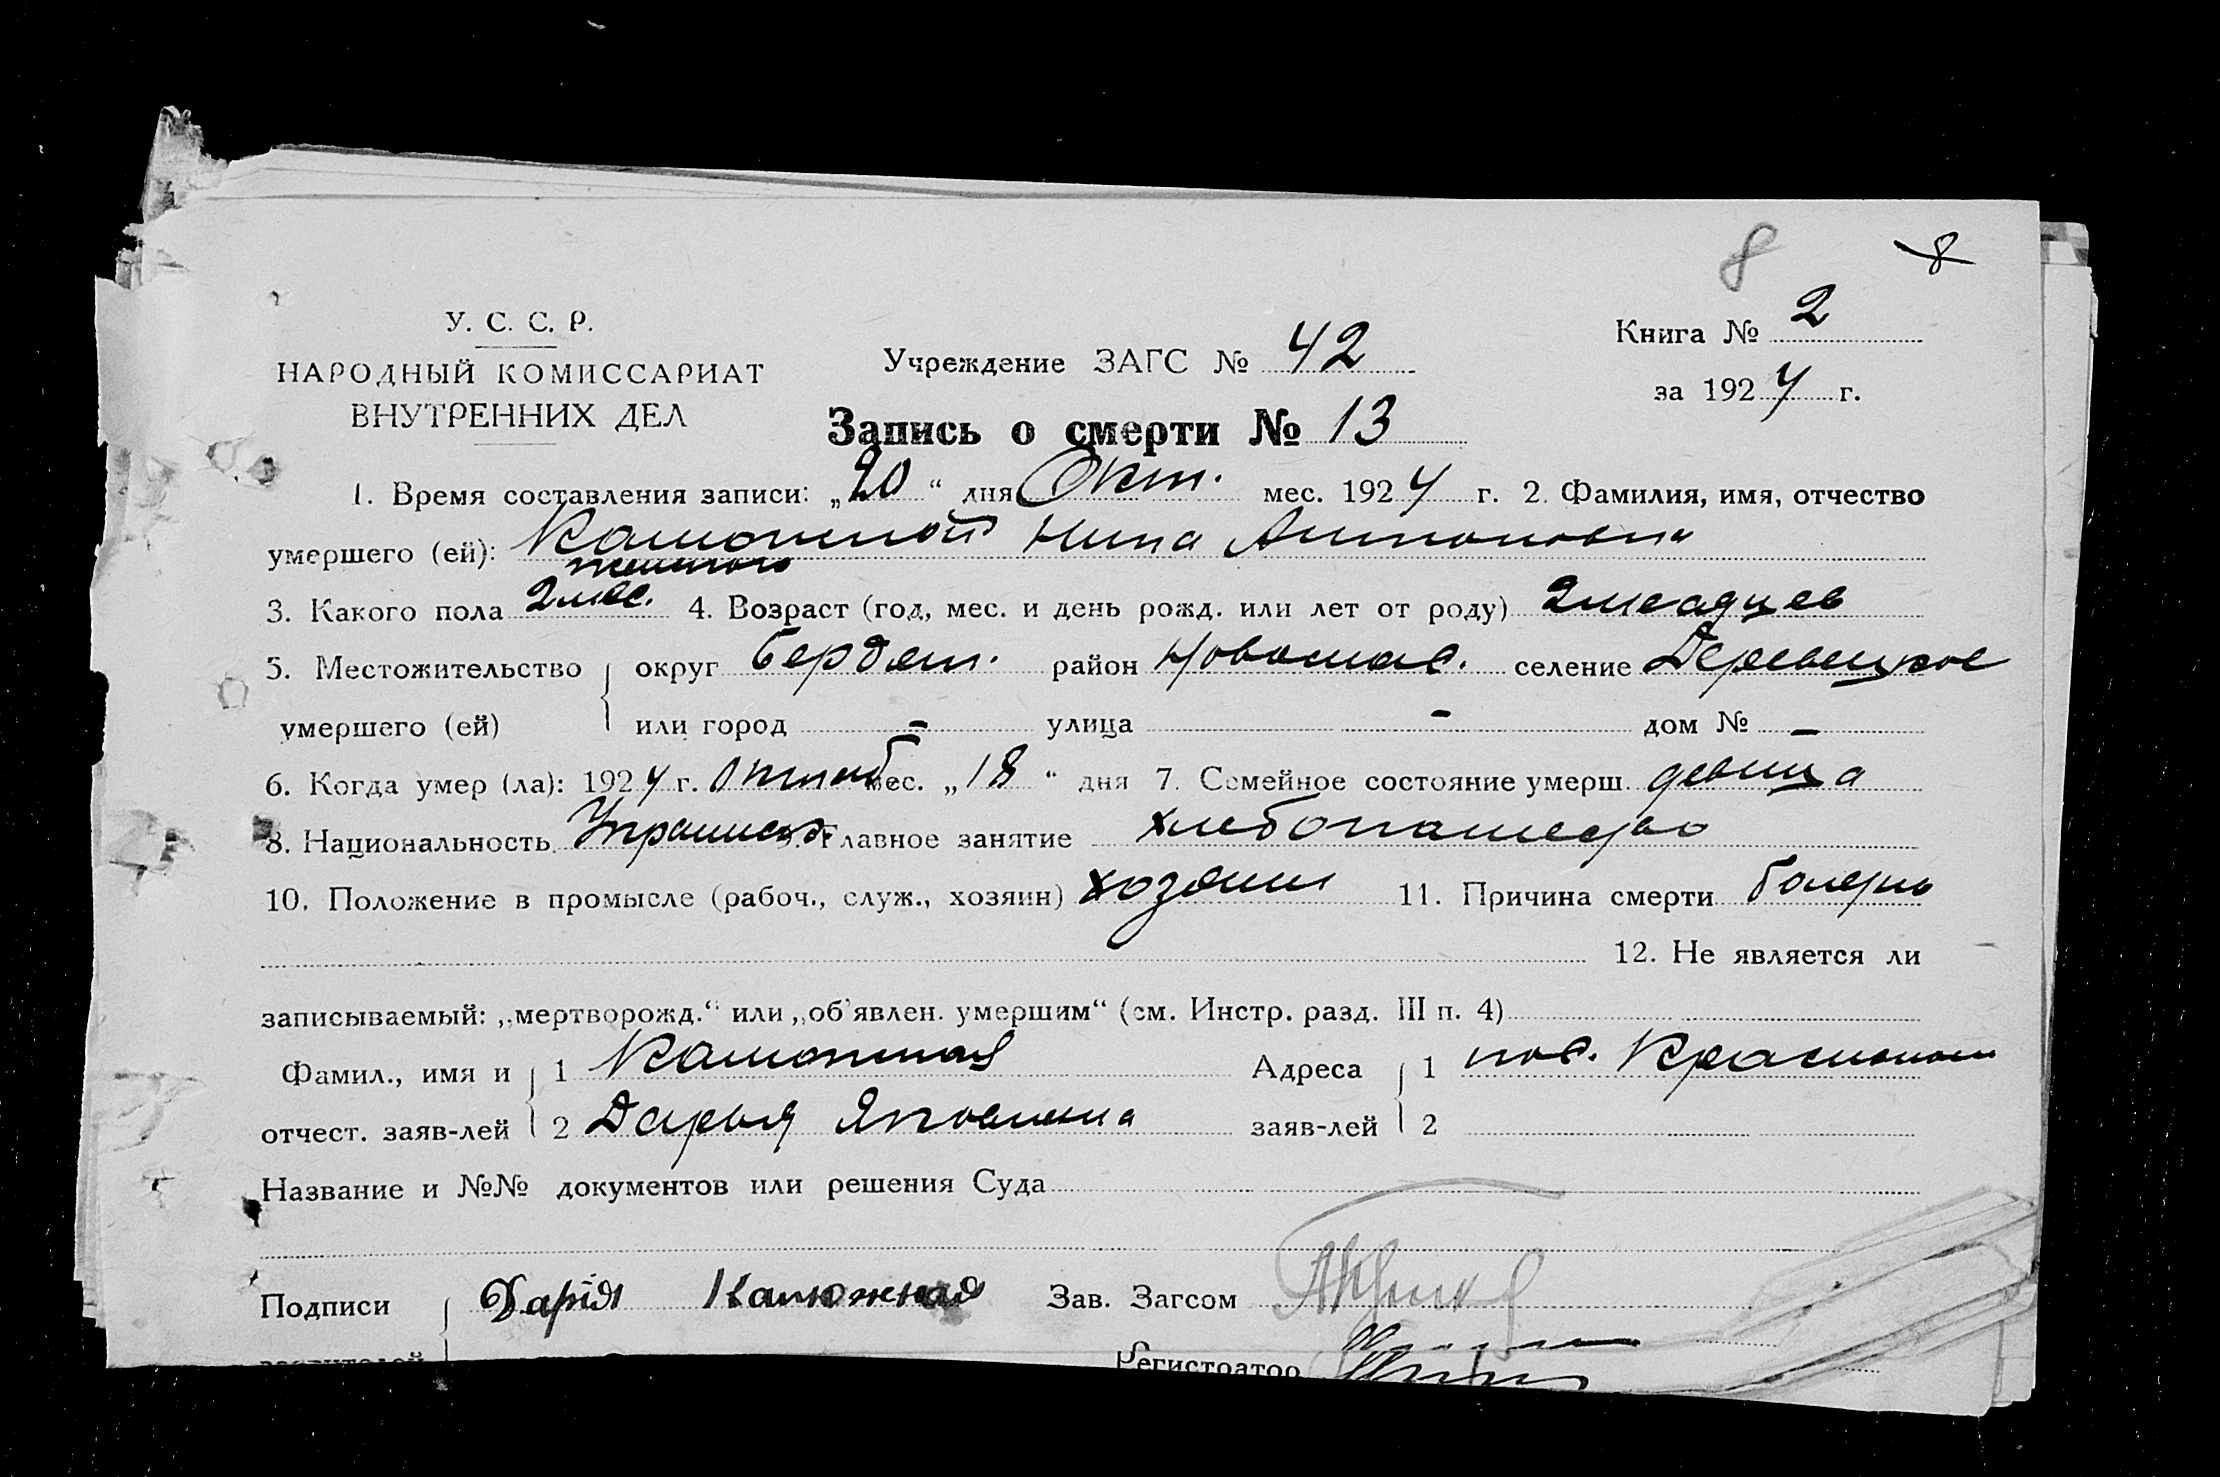 8 8
У. С. С. Р.
НАРОДНЫЙ КОМИССАРИАТ
ВНУТРЕННИХ ДЕЛ
Учреждение ЗАГС № 42
Книга № 2
за 1924 г.
Запись о смерти № 13
1. Время составления записи: „20“ дня Окт. мес. 1924 г. 2. Фамилия, имя, отчество
умершего (ей): Калюжной Нина Антоновна
женского
3. Какого пола 2 мес. 4. Возраст (год, мес. и день рожд. или лет от роду) 2 месяцев
5. Местожительство округ Бердян. район Новоспас. селение Деревецкое
умершего (ей) или город - улица - дом № -
6. Когда умер (ла): 1924 г. Октяб мес. „18“ дня 7. Семейное состояние умерш. девица
8. Национальность Украинск. 9. Главное занятие хлебопашество
10. Положение в промысле (рабоч., служ., хозяин) хозяин 11. Причина смерти
12. Не является ли
записываемый: „мертворожд.“ или „об'явлен. умершим“ (см. Инстр. разд. III п. 4)
Фамил., имя и 1 Калюжная Адреса 1 пос.
отчест. заяв-лей 2 Дарья Яковлевна заяв-лей 2
Название и №№ документов или решения Суда
Подписи Дарія Калюжная Зав. Загсом
Регистратор